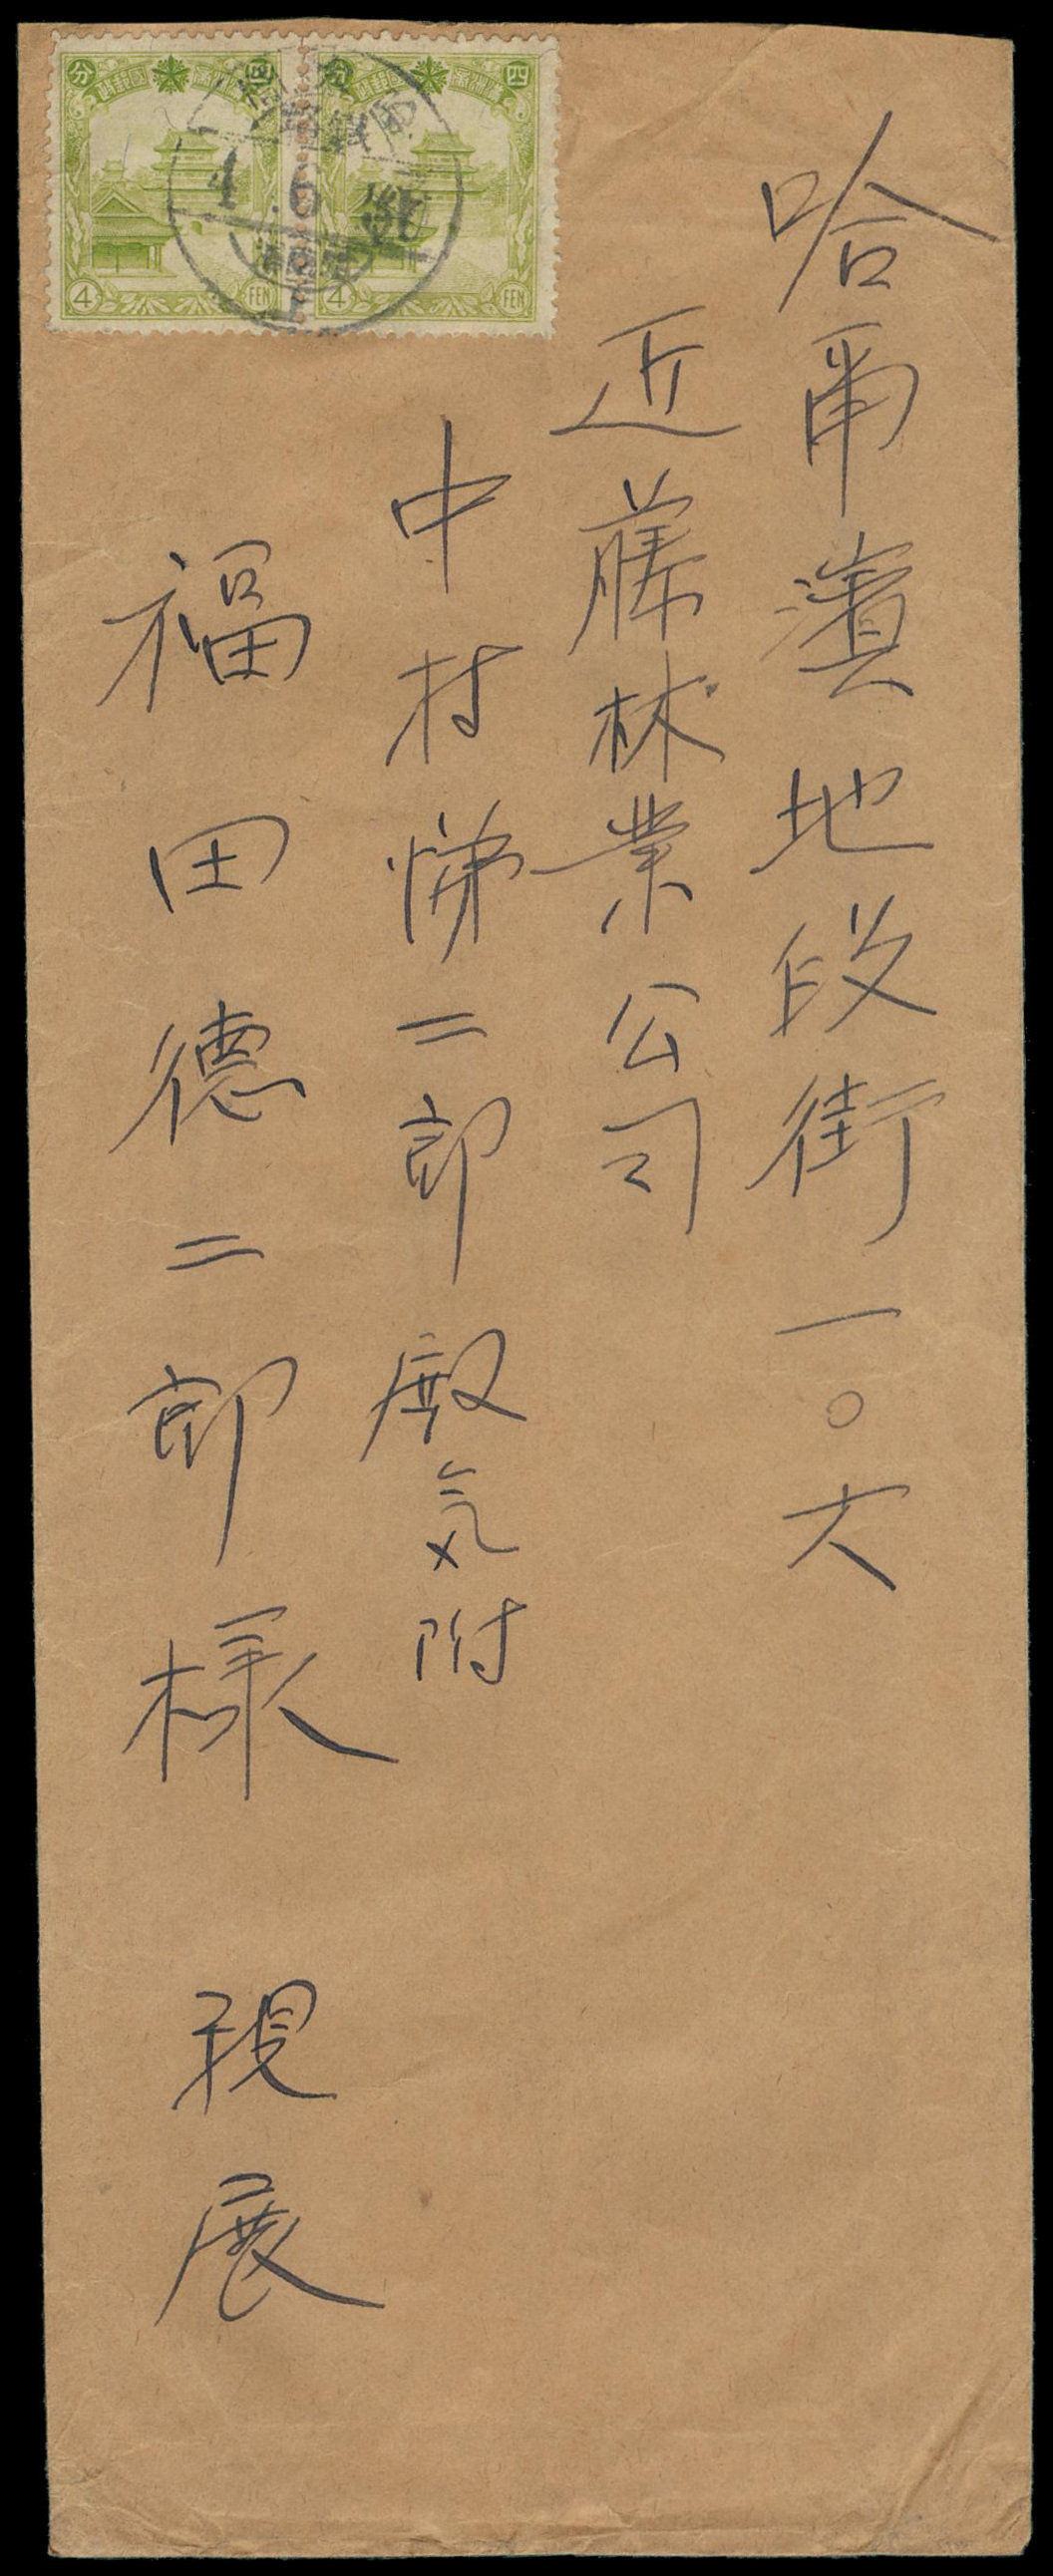 哈爾濱地段街一〇六
近藤林業公司
中村悌二郎殿気附
福田德二郎様
親展
四分
4
FEN
四分
4
FEN
4.6